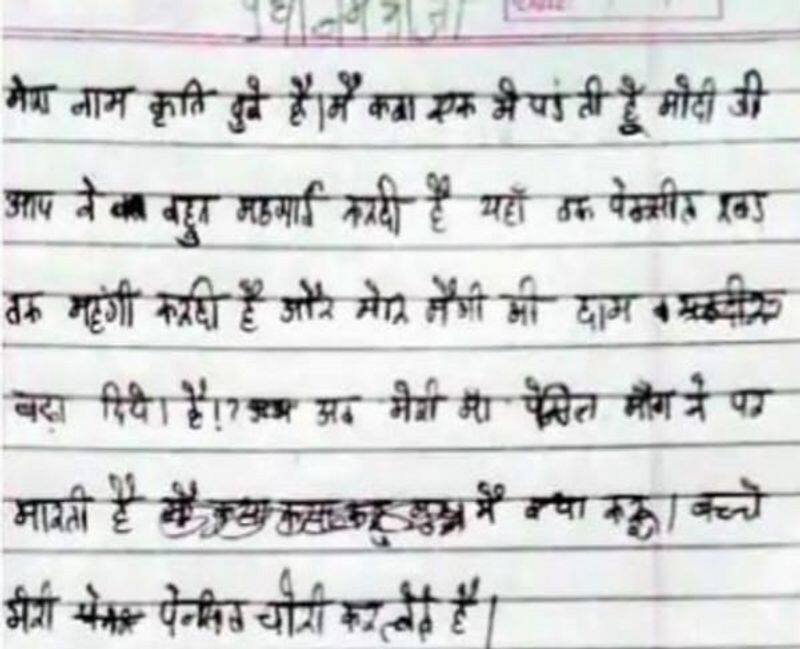 प्रधानमंत्री जी
मेरा नाम कृति दुबे है।मैं कक्षा एक मे पढंती हूँ मोदी जी
आप ने बहुत महगाई करदी है यहाँ तक पेन्सील रबड
तक महंगी करदी है और मेरि मैगी भी दाम
बढा दिये। है!? अब मेरी मां पेंसिल माँग ने पर
मारती है मैं क्या करू। बच्चे
मेरी पेन्सिल चोरी कर लेते है।